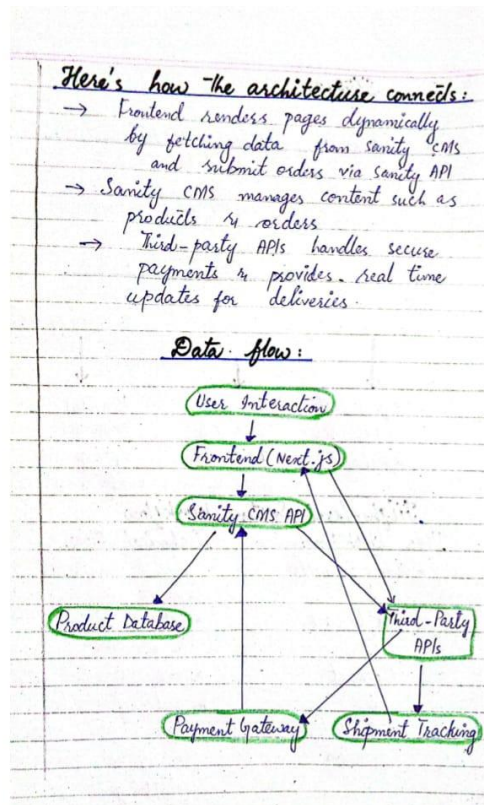 Here's how The architecture connects:
→ Frontend renders pages dynamically
by fetching data from sanity CMS
and submit orders via Sanity API
→ Sanity CMS manages content such as
products & orders
→ Third-party APIs handles secure
payments & provides real time
updates for deliveries.
Data flow:
User Interaction
Frontend (Next.js)
Sanity CMS API
Product Database
Third-Party
APIs
Payment Gateway
Shipment Tracking